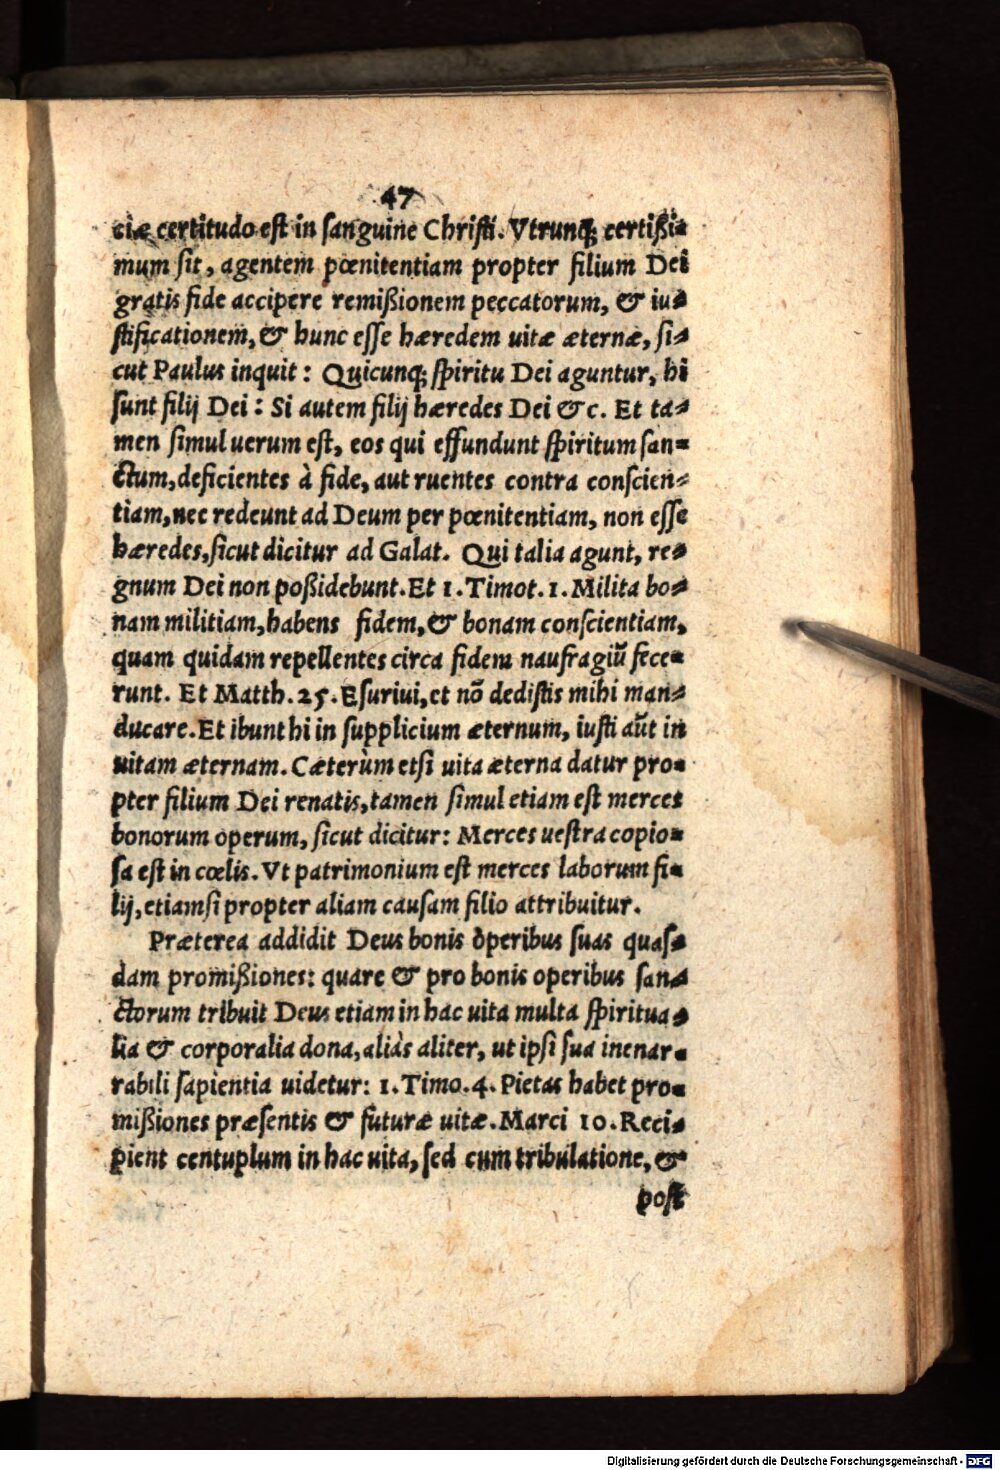 47
ciæ certitudo est in sanguine Christi. Vtrunq; certißi-
mum sit, agentem pœnitentiam propter filium Dei
gratis fide accipere remißionem peccatorum, & iu-
stificationem, & hunc esse hæredem uitæ æternæ, si-
cut Paulus inquit: Quicunq; spiritu Dei aguntur, hi
sunt filij Dei: Si autem filij hæredes Dei &c. Et ta-
men simul uerum est, eos qui effundunt spiritum san-
ctum, deficientes à fide, aut ruentes contra conscien-
tiam, nec redeunt ad Deum per pœnitentiam, non esse
hæredes, sicut dicitur ad Galat. Qui talia agunt, re-
gnum Dei non poßidebunt. Et 1. Timot. 1. Milita bo-
nam militiam, habens fidem, & bonam conscientiam,
quam quidam repellentes circa fidem naufragiũ fece-
runt. Et Matth. 25. Esuriui, et nõ dedistis mihi man-
ducare. Et ibunt hi in supplicium æternum, iusti aũt in
uitam æternam. Cæterùm etsi uita æterna datur pro-
pter filium Dei renatis, tamen simul etiam est merces
bonorum operum, sicut dicitur: Merces uestra copio-
sa est in cœlis. Vt patrimonium est merces laborum fi-
lij, etiamsi propter aliam causam filio attribuitur.
Præterea addidit Deus bonis operibus suas quas-
dam promißiones: quare & pro bonis operibus san-
ctorum tribuit Deus etiam in hac uita multa spiritua-
lia & corporalia dona, aliàs aliter, ut ipsi sua inenar-
rabili sapientia uidetur: 1. Timo. 4. Pietas habet pro-
mißiones præsentis & futuræ uitæ. Marci 10. Reci-
pient centuplum in hac uita, sed cum tribulatione, &
post
Digitalisierung gefördert durch die Deutsche Forschungsgemeinschaft - DFG